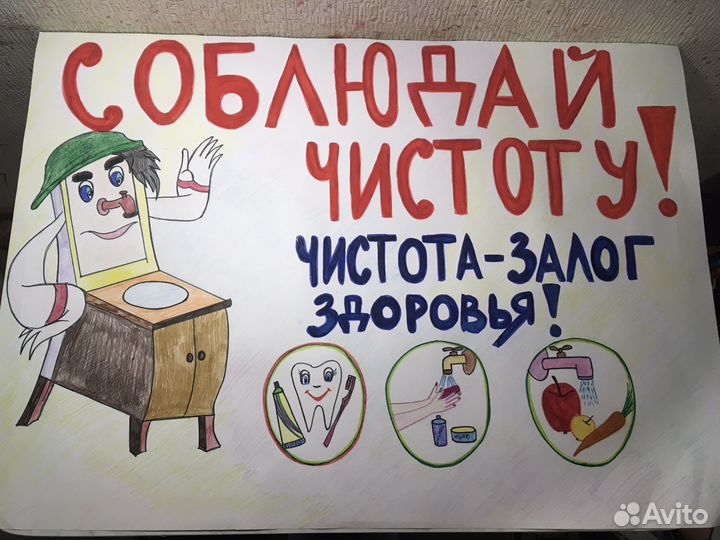 СОБЛЮДАЙ
ЧИСТОТУ!
ЧИСТОТА-ЗАЛОГ
ЗДОРОВЬЯ!
Avito